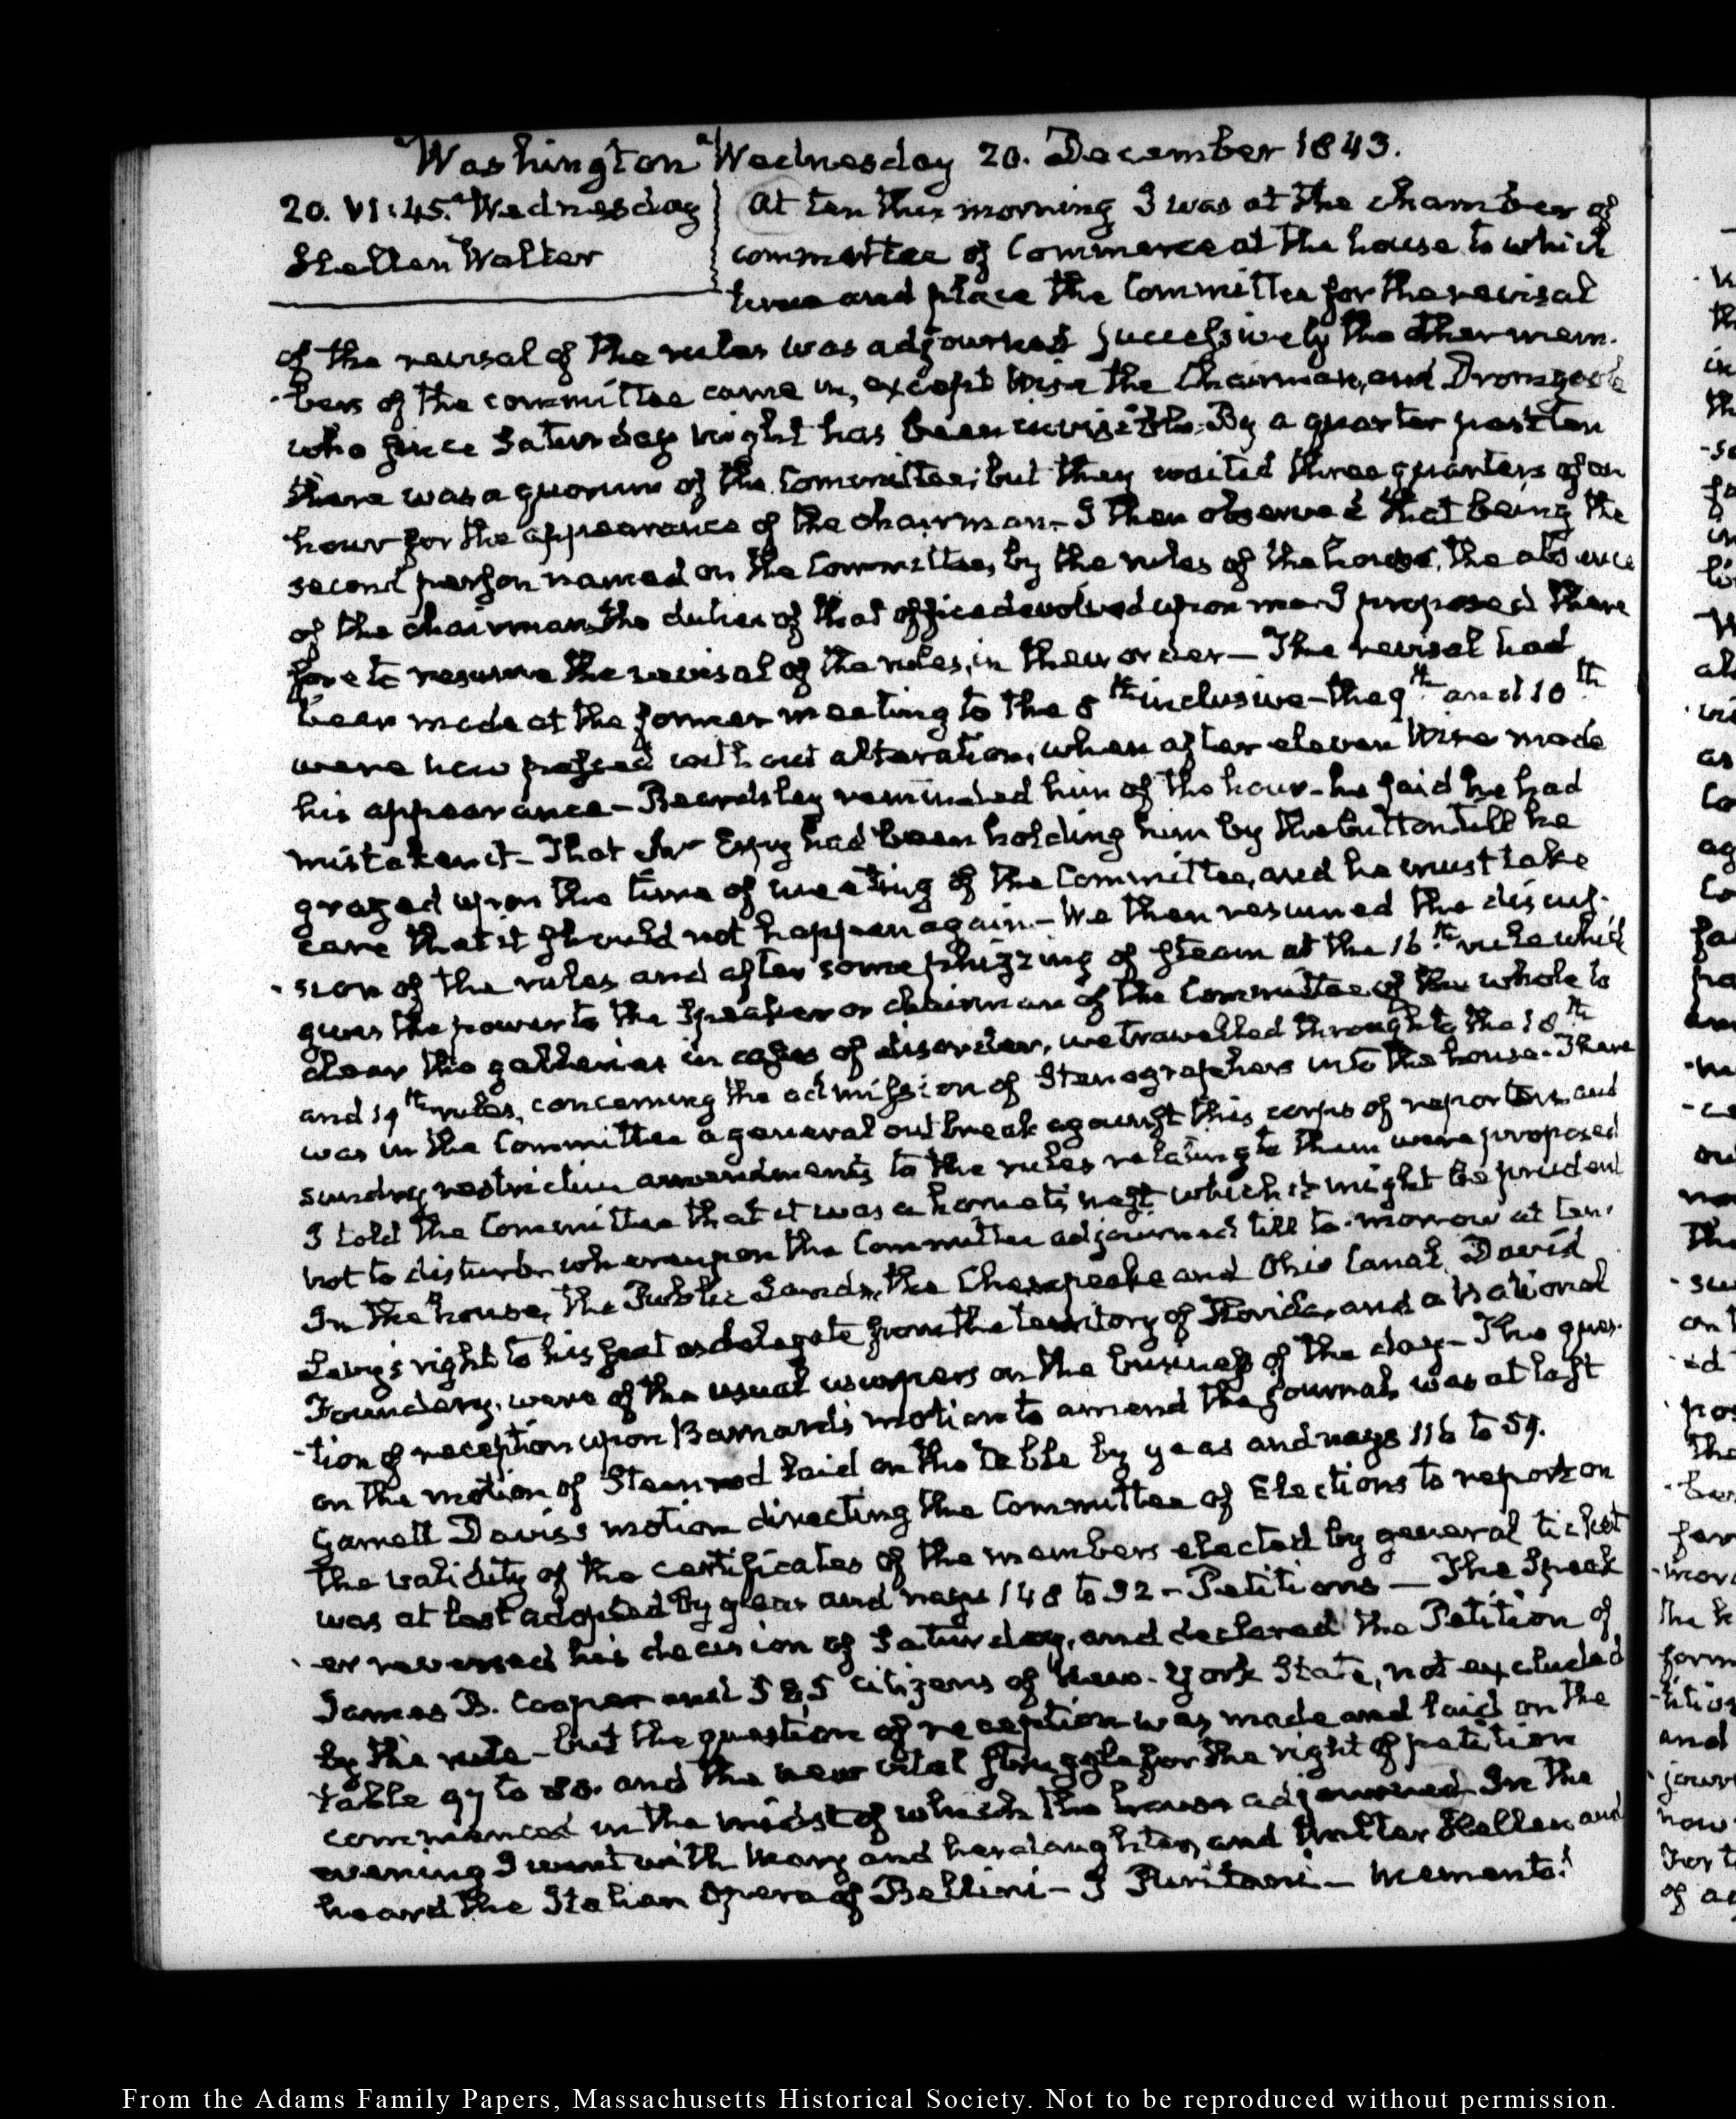 Washington Wednesday 20. December 1843.
20. VI:45. Wednesday
Hellen Walter
At ten this morning I was at the chamber of
committee of Commerce at the house to which
time and place the Committee for the revisal
of the revisal of the rules was adjourned successively the other mem-
-bers of the committee came in, except Wise the Chairman, and Dromgoole
who since Saturday night has been invisible. By a quarter past ten
there was a quorum of the Committee; but they waited three quarters of an
hour for the appearance of the chairman— I then observed that being the
second person named on the Committee, by the rules of the house, the absence
of the chairman the duties of that office devolved upon me. I proposed there
fore to resume the revisal of the rules, in their order— The revisal had
been made at the former meeting to the 8th inclusive— the 9th and 10th
were now passed without alteration, when after eleven Wise made
his appearance— Beardsley reminded him of the hour— he said he had
mistaken it— That Mr Espy had been holding him by the button till he
grazed upon the time of meeting of the Committee, and he must take
care that it should not happen again.— We then resumed the discus-
-sion of the rules and after some phizzing of steam at the 16th rule which
gives the power to the Speaker or chairman of the Committee of the whole to
clear the galleries in cases of disorder, we travelled through to the 18th
and 19th rules, concerning the admission of Stenographers into the house. There
was in the Committee a general outbreak against this corps of reporters, and
sundry restrictive amendments to the rules relating to them were proposed
I told the Committee that it was a hornet's nest which it might be prudent
not to disturb. whereupon the Committee adjourned till to-morrow at ten.
In the house, the Public Lands, the Chesapeake and Ohio Canal, David
Levy's right to his seat as delegate from the territory of Florida, and a National
Foundery, were of the usual usurpers on the business of the day— The ques-
-tion of reception upon Barnard's motion to amend the journal, was at last
on the motion of Steenrod laid on the table by yeas and nays 116 to 59.
Garrett Davis's motion directing the Committee of Elections to report on
the validity of the certificates of the members elected by general ticket
was at last adopted by yeas and nays 148 to 32— Petitions — The Speak
-er reversed his decision of Saturday, and declared the Petition of
James B. Cooper and 585 citizens of New-York State, not excluded
by the rule— but the question of reception was made and laid on the
table 97 to 80. and the new vital struggle for the right of petition
commenced in the midst of which the house adjourned. In the
evening I went with Mary and her daughter, and Walter Hellen and
heard the Italian Opera of Bellini— I Puritani— Memento!
From the Adams Family Papers, Massachusetts Historical Society. Not to be reproduced without permission.